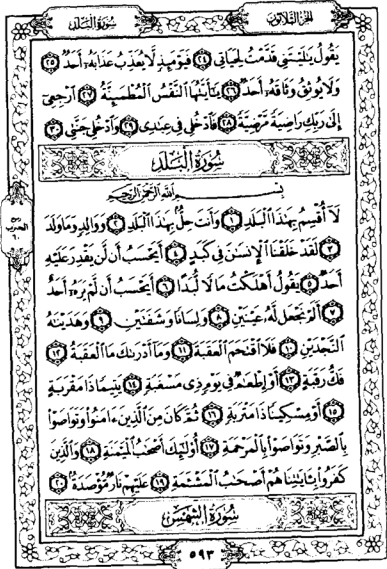 الجزء الثلاثون
سورة البلد
يَقُولُ يَٰلَيْتَنِى قَدَّمْتُ لِحَيَاتِى ٢٤ فَيَوْمَئِذٍ لَّا يُعَذِّبُ عَذَابَهُۥٓ أَحَدٌ ٢٥
وَلَا يُوثِقُ وَثَاقَهُۥٓ أَحَدٌ ٢٦ يَٰٓأَيَّتُهَا ٱلنَّفْسُ ٱلْمُطْمَئِنَّةُ ٢٧ ٱرْجِعِىٓ
إِلَىٰ رَبِّكِ رَاضِيَةً مَّرْضِيَّةً ٢٨ فَٱدْخُلِى فِى عِبَٰدِى ٢٩ وَٱدْخُلِى جَنَّتِى ٣٠
سورة البلد
بِسْمِ ٱللَّهِ ٱلرَّحْمَٰنِ ٱلرَّحِيمِ
لَآ أُقْسِمُ بِهَٰذَا ٱلْبَلَدِ ١ وَأَنتَ حِلٌّۢ بِهَٰذَا ٱلْبَلَدِ ٢ وَوَالِدٍ وَمَا وَلَدَ
٣ لَقَدْ خَلَقْنَا ٱلْإِنسَٰنَ فِى كَبَدٍ ٤ أَيَحْسَبُ أَن لَّن يَقْدِرَ عَلَيْهِ
أَحَدٌ ٥ يَقُولُ أَهْلَكْتُ مَالًا لُّبَدًا ٦ أَيَحْسَبُ أَن لَّمْ يَرَهُۥٓ أَحَدٌ
٧ أَلَمْ نَجْعَل لَّهُۥ عَيْنَيْنِ ٨ وَلِسَانًا وَشَفَتَيْنِ ٩ وَهَدَيْنَٰهُ
ٱلنَّجْدَيْنِ ١٠ فَلَا ٱقْتَحَمَ ٱلْعَقَبَةَ ١١ وَمَآ أَدْرَىٰكَ مَا ٱلْعَقَبَةُ ١٢
فَكُّ رَقَبَةٍ ١٣ أَوْ إِطْعَٰمٌ فِى يَوْمٍ ذِى مَسْغَبَةٍ ١٤ يَتِيمًا ذَا مَقْرَبَةٍ
١٥ أَوْ مِسْكِينًا ذَا مَتْرَبَةٍ ١٦ ثُمَّ كَانَ مِنَ ٱلَّذِينَ ءَامَنُوا۟ وَتَوَاصَوْا۟
بِٱلصَّبْرِ وَتَوَاصَوْا۟ بِٱلْمَرْحَمَةِ ١٧ أُو۟لَٰٓئِكَ أَصْحَٰبُ ٱلْمَيْمَنَةِ ١٨ وَٱلَّذِينَ
كَفَرُوا۟ بِـَٔايَٰتِنَا هُمْ أَصْحَٰبُ ٱلْمَشْـَٔمَةِ ١٩ عَلَيْهِمْ نَارٌ مُّؤْصَدَةٌۢ ٢٠
سورة الشمس
الحزب
٦٠
٥٩٣